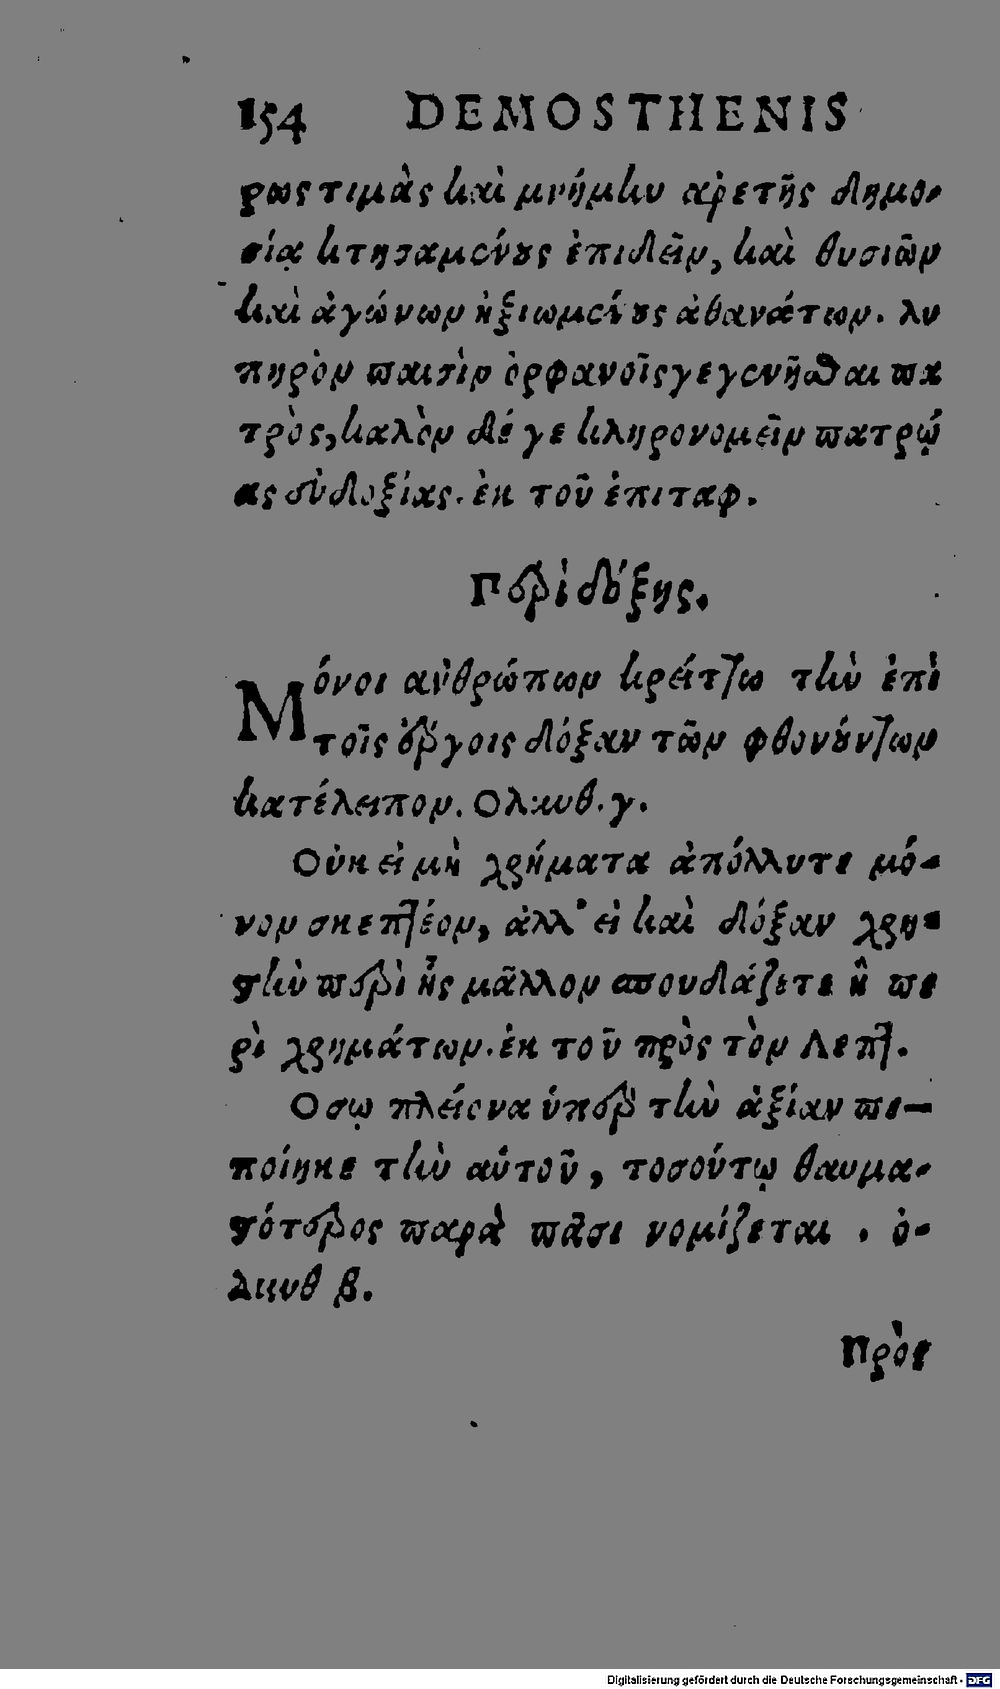 154 DEMOSTHENIS
ρως τιμὰς καὶ μνήμην αρετῆς δημο-
σίᾳ κτησαμένους ἐπιδεῖν, καὶ θυσιῶν
καὶ ἀγώνων ἠξιωμένους ἀθανάτων. λυ
πηρὸν παισὶν ὀρφανοῖς γεγενῆσθαι πα
τρὸς, καλὸν δέ γε κληρονομεῖν πατρῴ
ας εὐδοξίας. ἐκ τοῦ ἐπιταφ.
Περὶ δόξης.
Μόνοι ανθρώπων κρείττω τὴν ἐπὶ
τοῖς ἔργοις δόξαν τῶν φθονούντων
κατέλειπον. Ολυνθ. γ.
Οὐκ εἰ μὴ χρήματα ἀπόλλυτε μό-
νον σκεπτέον, ἀλλ' εἰ καὶ δόξαν χρη-
στὴν περὶ ἧς μᾶλλον σπουδάζετε ἢ πε
ρὶ χρημάτων. ἐκ τοῦ πρὸς τὸν Λεπτ.
Οσῳ πλείονα ὑπὲρ τὴν ἀξίαν πε-
ποίηκε τὴν αὑτοῦ, τοσούτῳ θαυμα-
στότερος παρὰ πᾶσι νομίζεται . ὀ-
λυνθ β.
Πρὸς
Digitalisierung gefördert durch die Deutsche Forschungsgemeinschaft - DFG